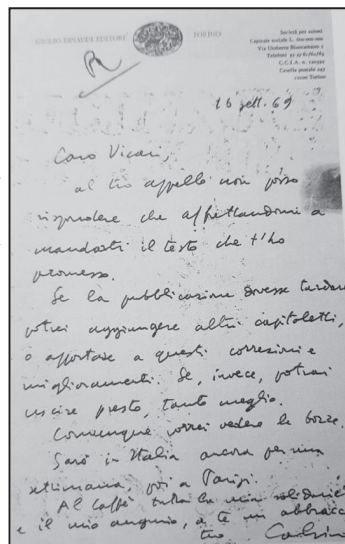 GIULIO EINAUDI EDITORE
TORINO
Società per azioni
Capitale sociale L. 600.000.000
Via Umberto Biancamano 1
C.C.I.A. n.
Casella postale 245
Torino
R
16 sett. 69
Caro Vicari,
al tuo appello non posso
rispondere che affrettandomi a
mandarti il testo che t'ho
promesso.
Se la pubblicazione dovesse tardare
potrei aggiungere altri capitoletti,
o apportare a questi correzioni e
miglioramenti. Se, invece, potrai
uscire presto, tanto meglio.
Comunque vorrei vedere le bozze.
Sarò in Italia ancora per una
settimana, poi a Parigi.
Al Caffè tutta la mia solidarietà
e il mio augurio, a te un abbraccio
tuo Calvino